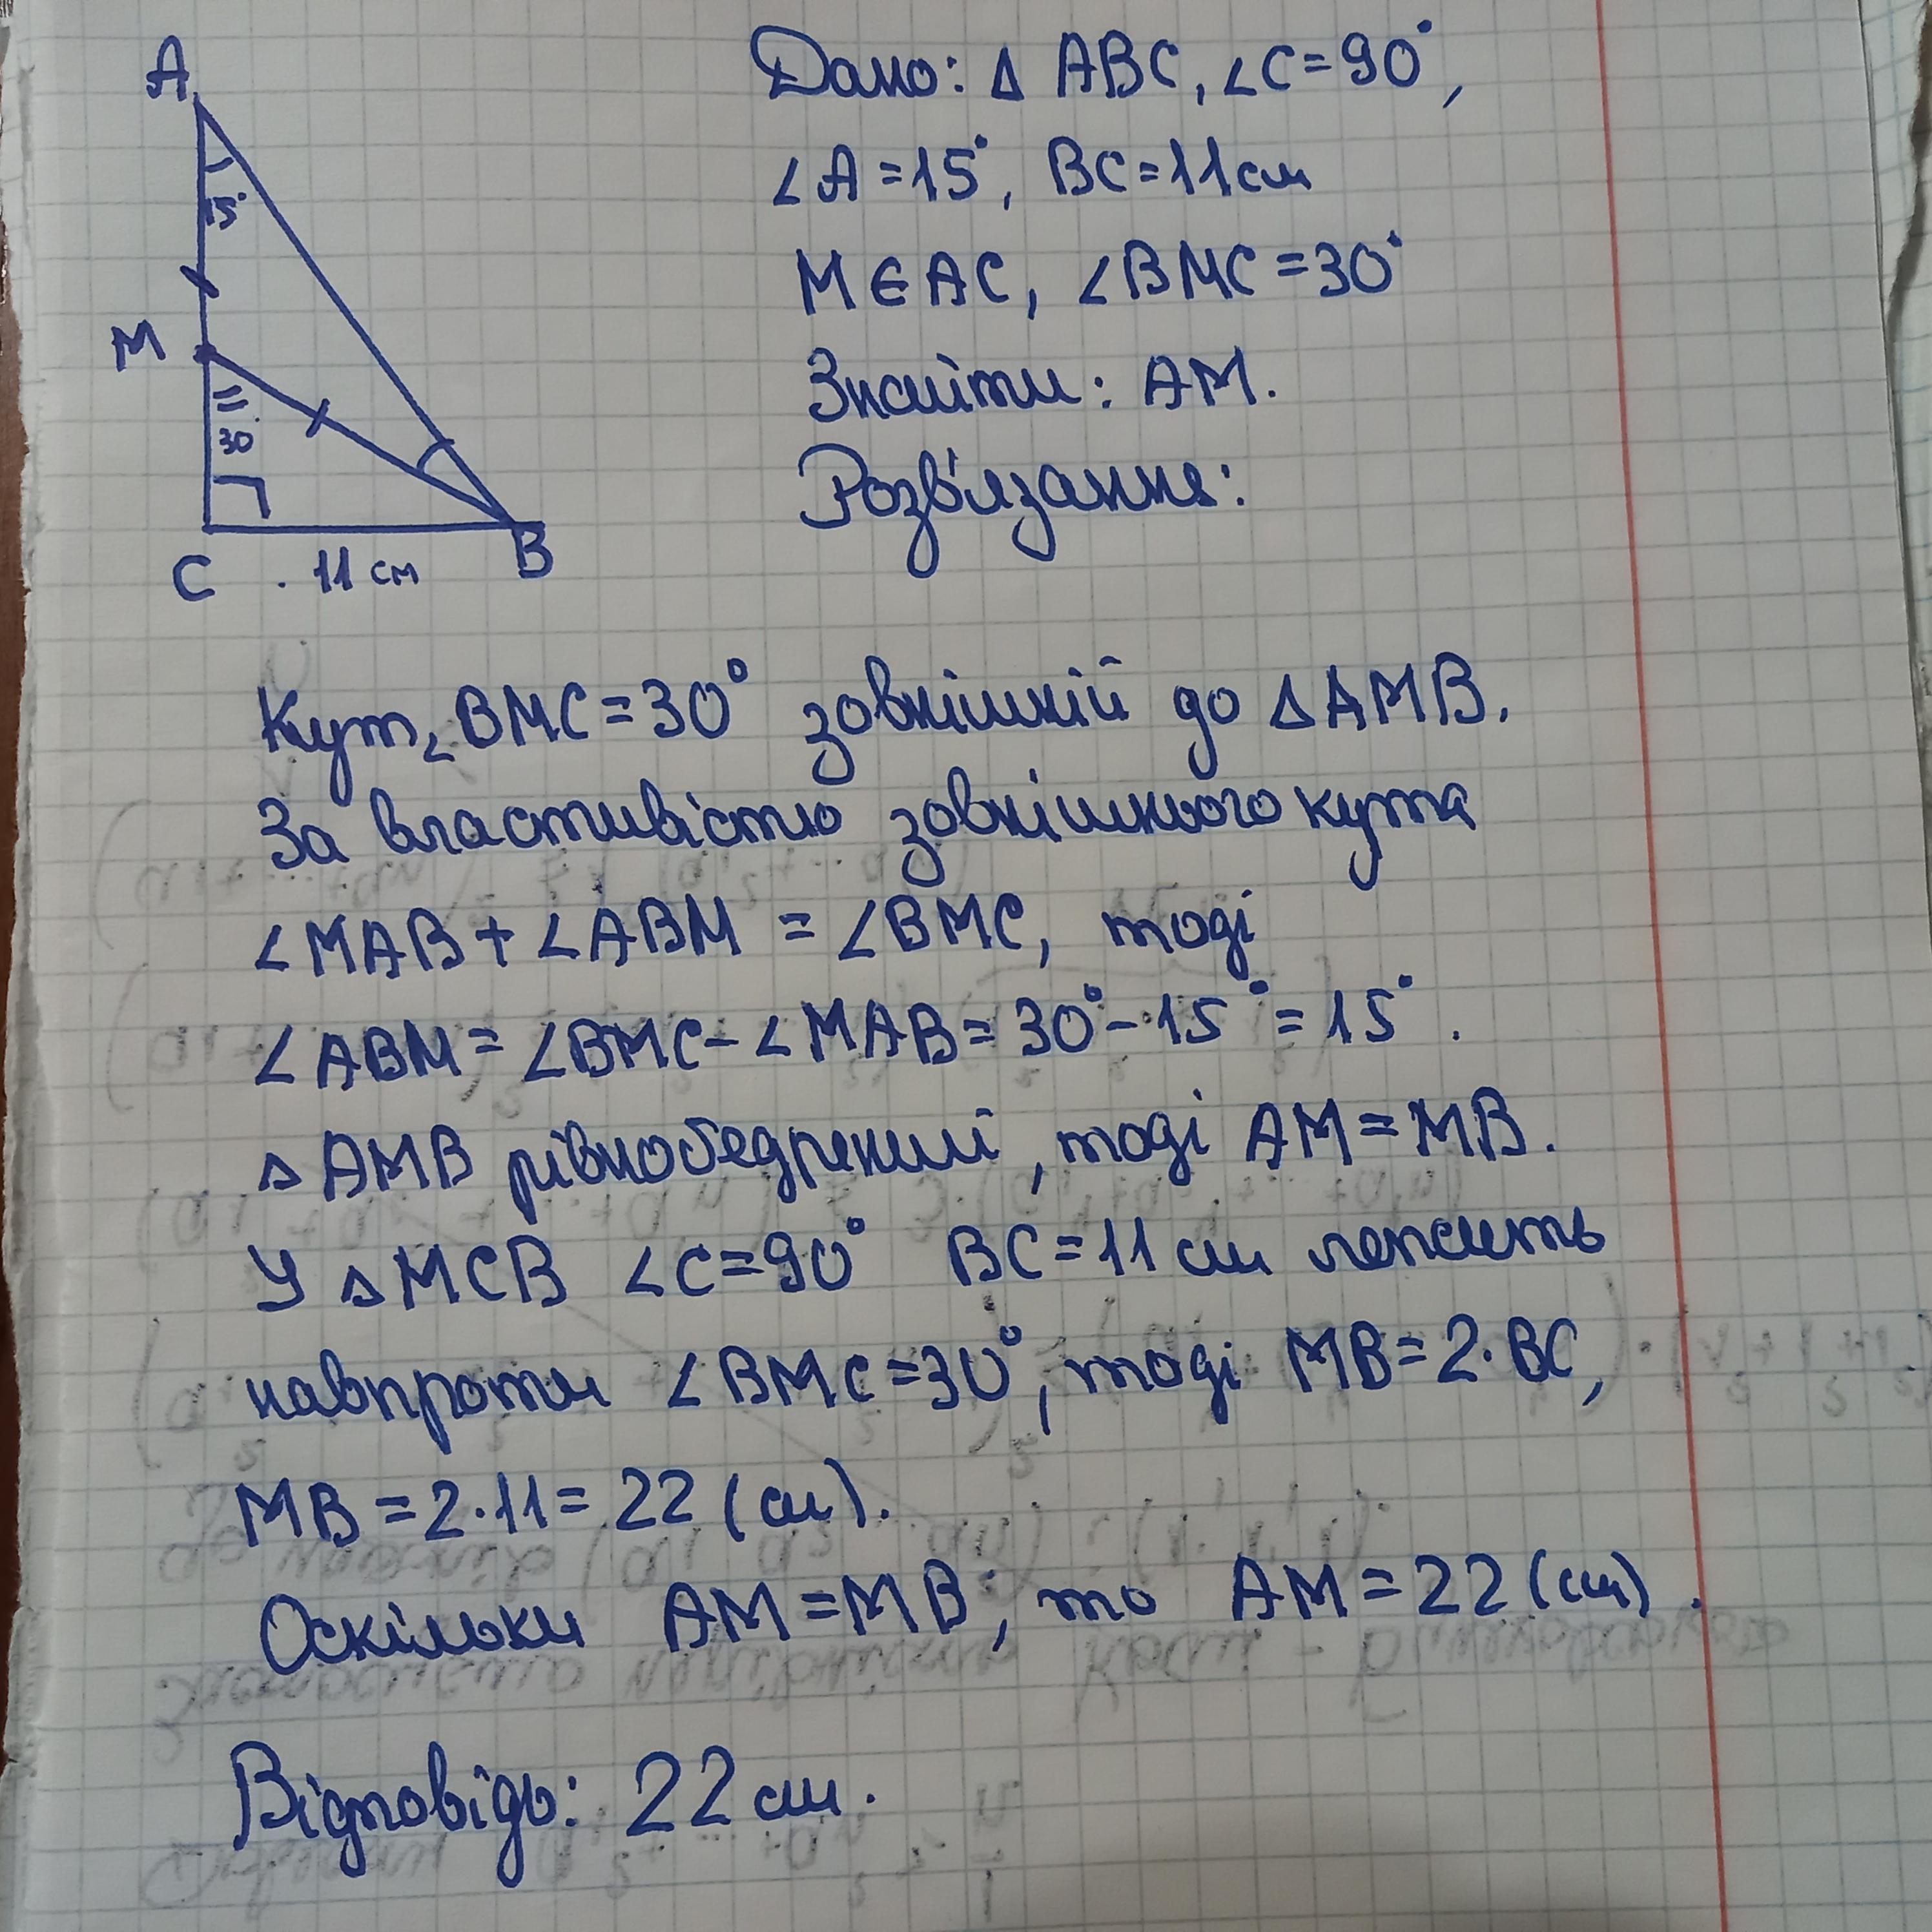 A
15°
M
30°
C
11 см
B
Дано: Δ ABC, ∠C=90°,
∠A=15°, BC=11см
M∈AC, ∠BMC=30°
Знайти: AM.
Розв'язання:
Кут ∠BMC=30° зовнішній до ΔAMB.
За властивістю зовнішнього кута
∠MAB+∠ABM=∠BMC, тоді
∠ABM=∠BMC-∠MAB=30°-15°=15°.
ΔAMB рівнобедрений, тоді AM=MB.
У ΔMCB ∠C=90° BC=11см лежить
навпроти ∠BMC=30°, тоді MB=2·BC,
MB=2·11=22 (см).
Оскільки AM=MB, то AM=22 (см).
Відповідь: 22 см.